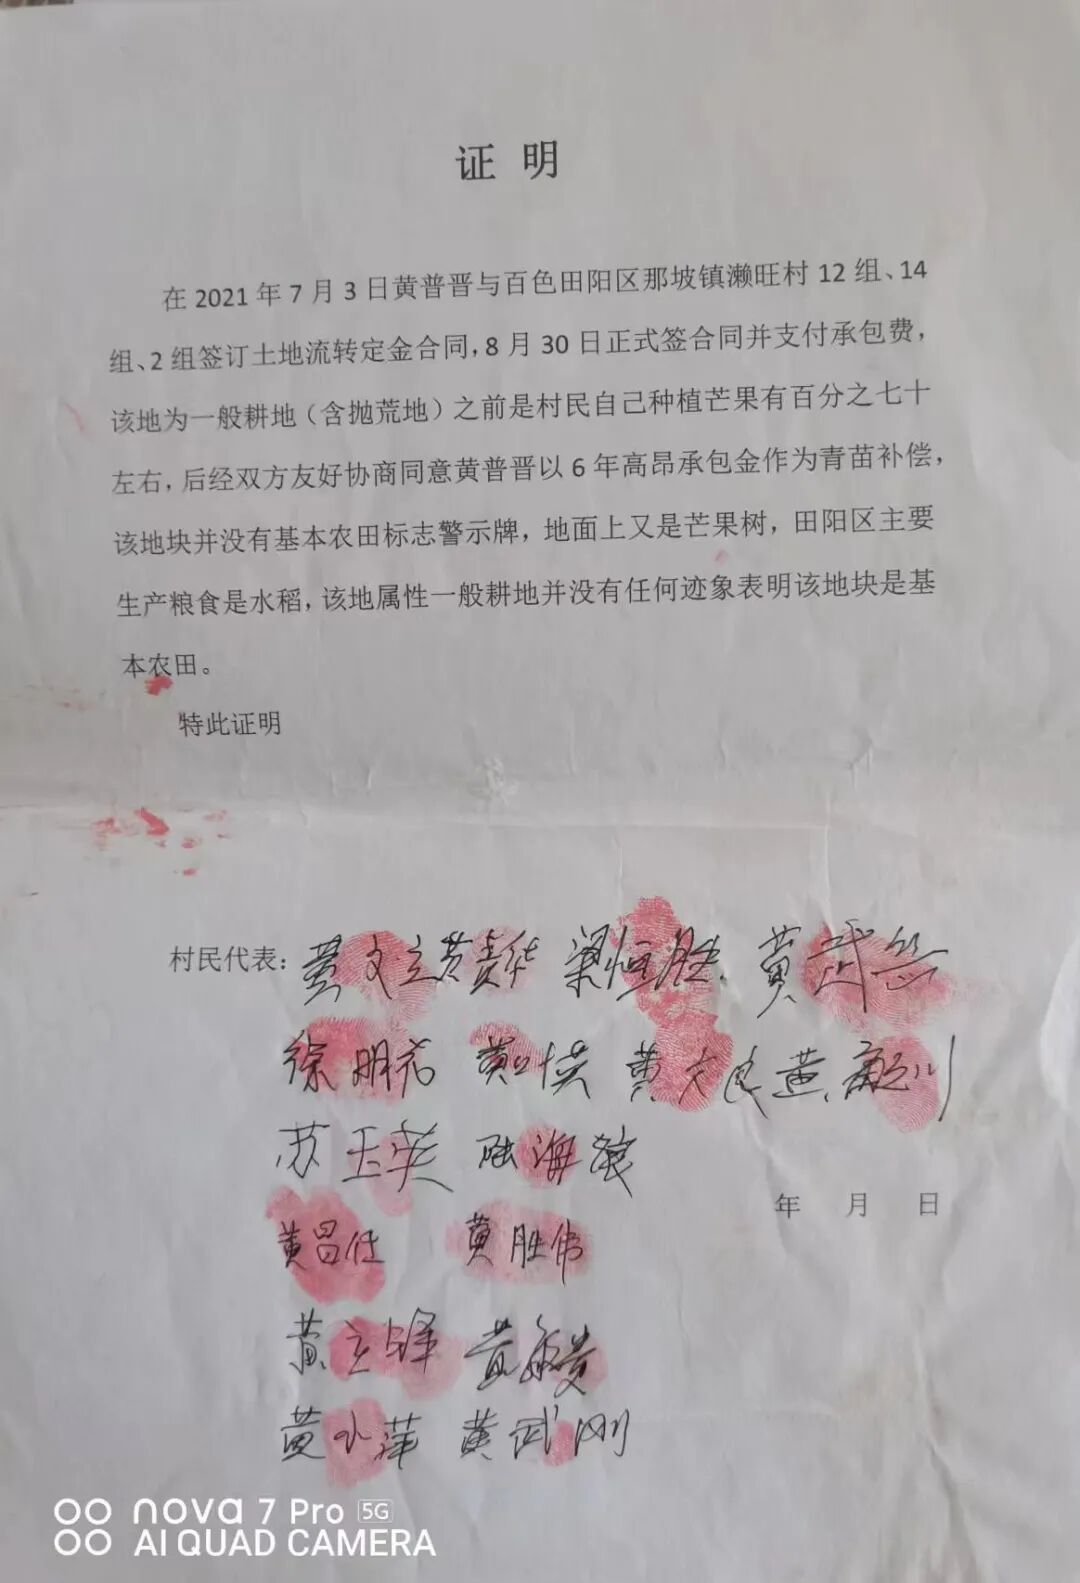 证 明
在 2021 年 7 月 3 日黄普晋与百色田阳区那坡镇濑旺村 12 组、14
组、2 组签订土地流转定金合同，8 月 30 日正式签合同并支付承包费，
该地为一般耕地（含抛荒地）之前是村民自己种植芒果有百分之七十
左右，后经双方友好协商同意黄普晋以 6 年高昂承包金作为青苗补偿，
该地块并没有基本农田标志警示牌，地面上又是芒果树，田阳区主要
生产粮食是水稻，该地属性一般耕地并没有任何迹象表明该地块是基
本农田。
特此证明
村民代表： 黄文立 黄贵华 梁恒胜 黄武
徐明 黄 黄大良 黄
苏玉英 陆海滚
年 月 日
黄昌任 黄胜伟
黄立锋 黄敏贵
黄小萍 黄武刚
nova 7 Pro 5G
AI QUAD CAMERA